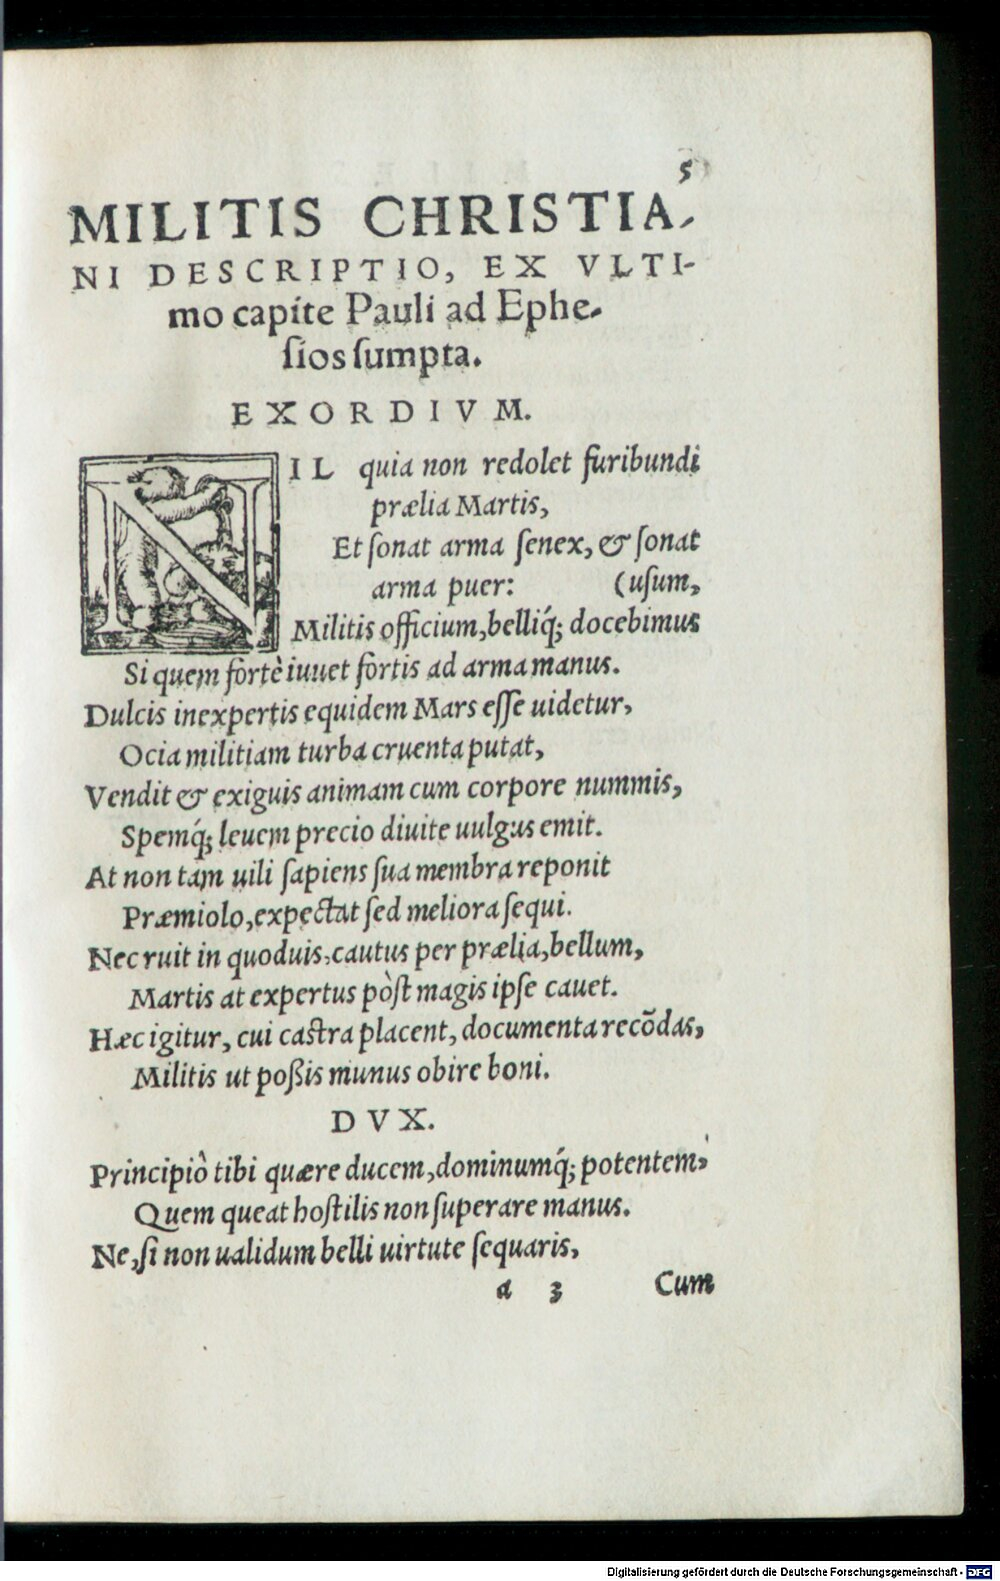 5
MILITIS CHRISTIA-
NI DESCRIPTIO, EX VLTI-
mo capite Pauli ad Ephe-
ſios ſumpta.
EXORDIVM.
NIL quia non redolet furibundi
prælia Martis,
Et ſonat arma ſenex, & ſonat
arma puer: (uſum,
Militis officium, belliq́; docebimus
Si quem fortè iuuet fortis ad arma manus.
Dulcis inexpertis equidem Mars eſſe uidetur,
Ocia militiam turba cruenta putat,
Vendit & exiguis animam cum corpore nummis,
Spemq́; leuem precio diuite uulgus emit.
At non tam uili ſapiens ſua membra reponit
Præmiolo, expectat ſed meliora ſequi.
Nec ruit in quoduis, cautus per prælia, bellum,
Martis at expertus pòſt magis ipſe cauet.
Hæc igitur, cui caſtra placent, documenta recõdas,
Militis ut poßis munus obire boni.
DVX.
Principiò tibi quære ducem, dominumq́; potentem,
Quem queat hoſtilis non ſuperare manus.
Ne, ſi non ualidum belli uirtute ſequaris,
a 3 Cum
Digitalisierung gefördert durch die Deutsche Forschungsgemeinschaft - DFG